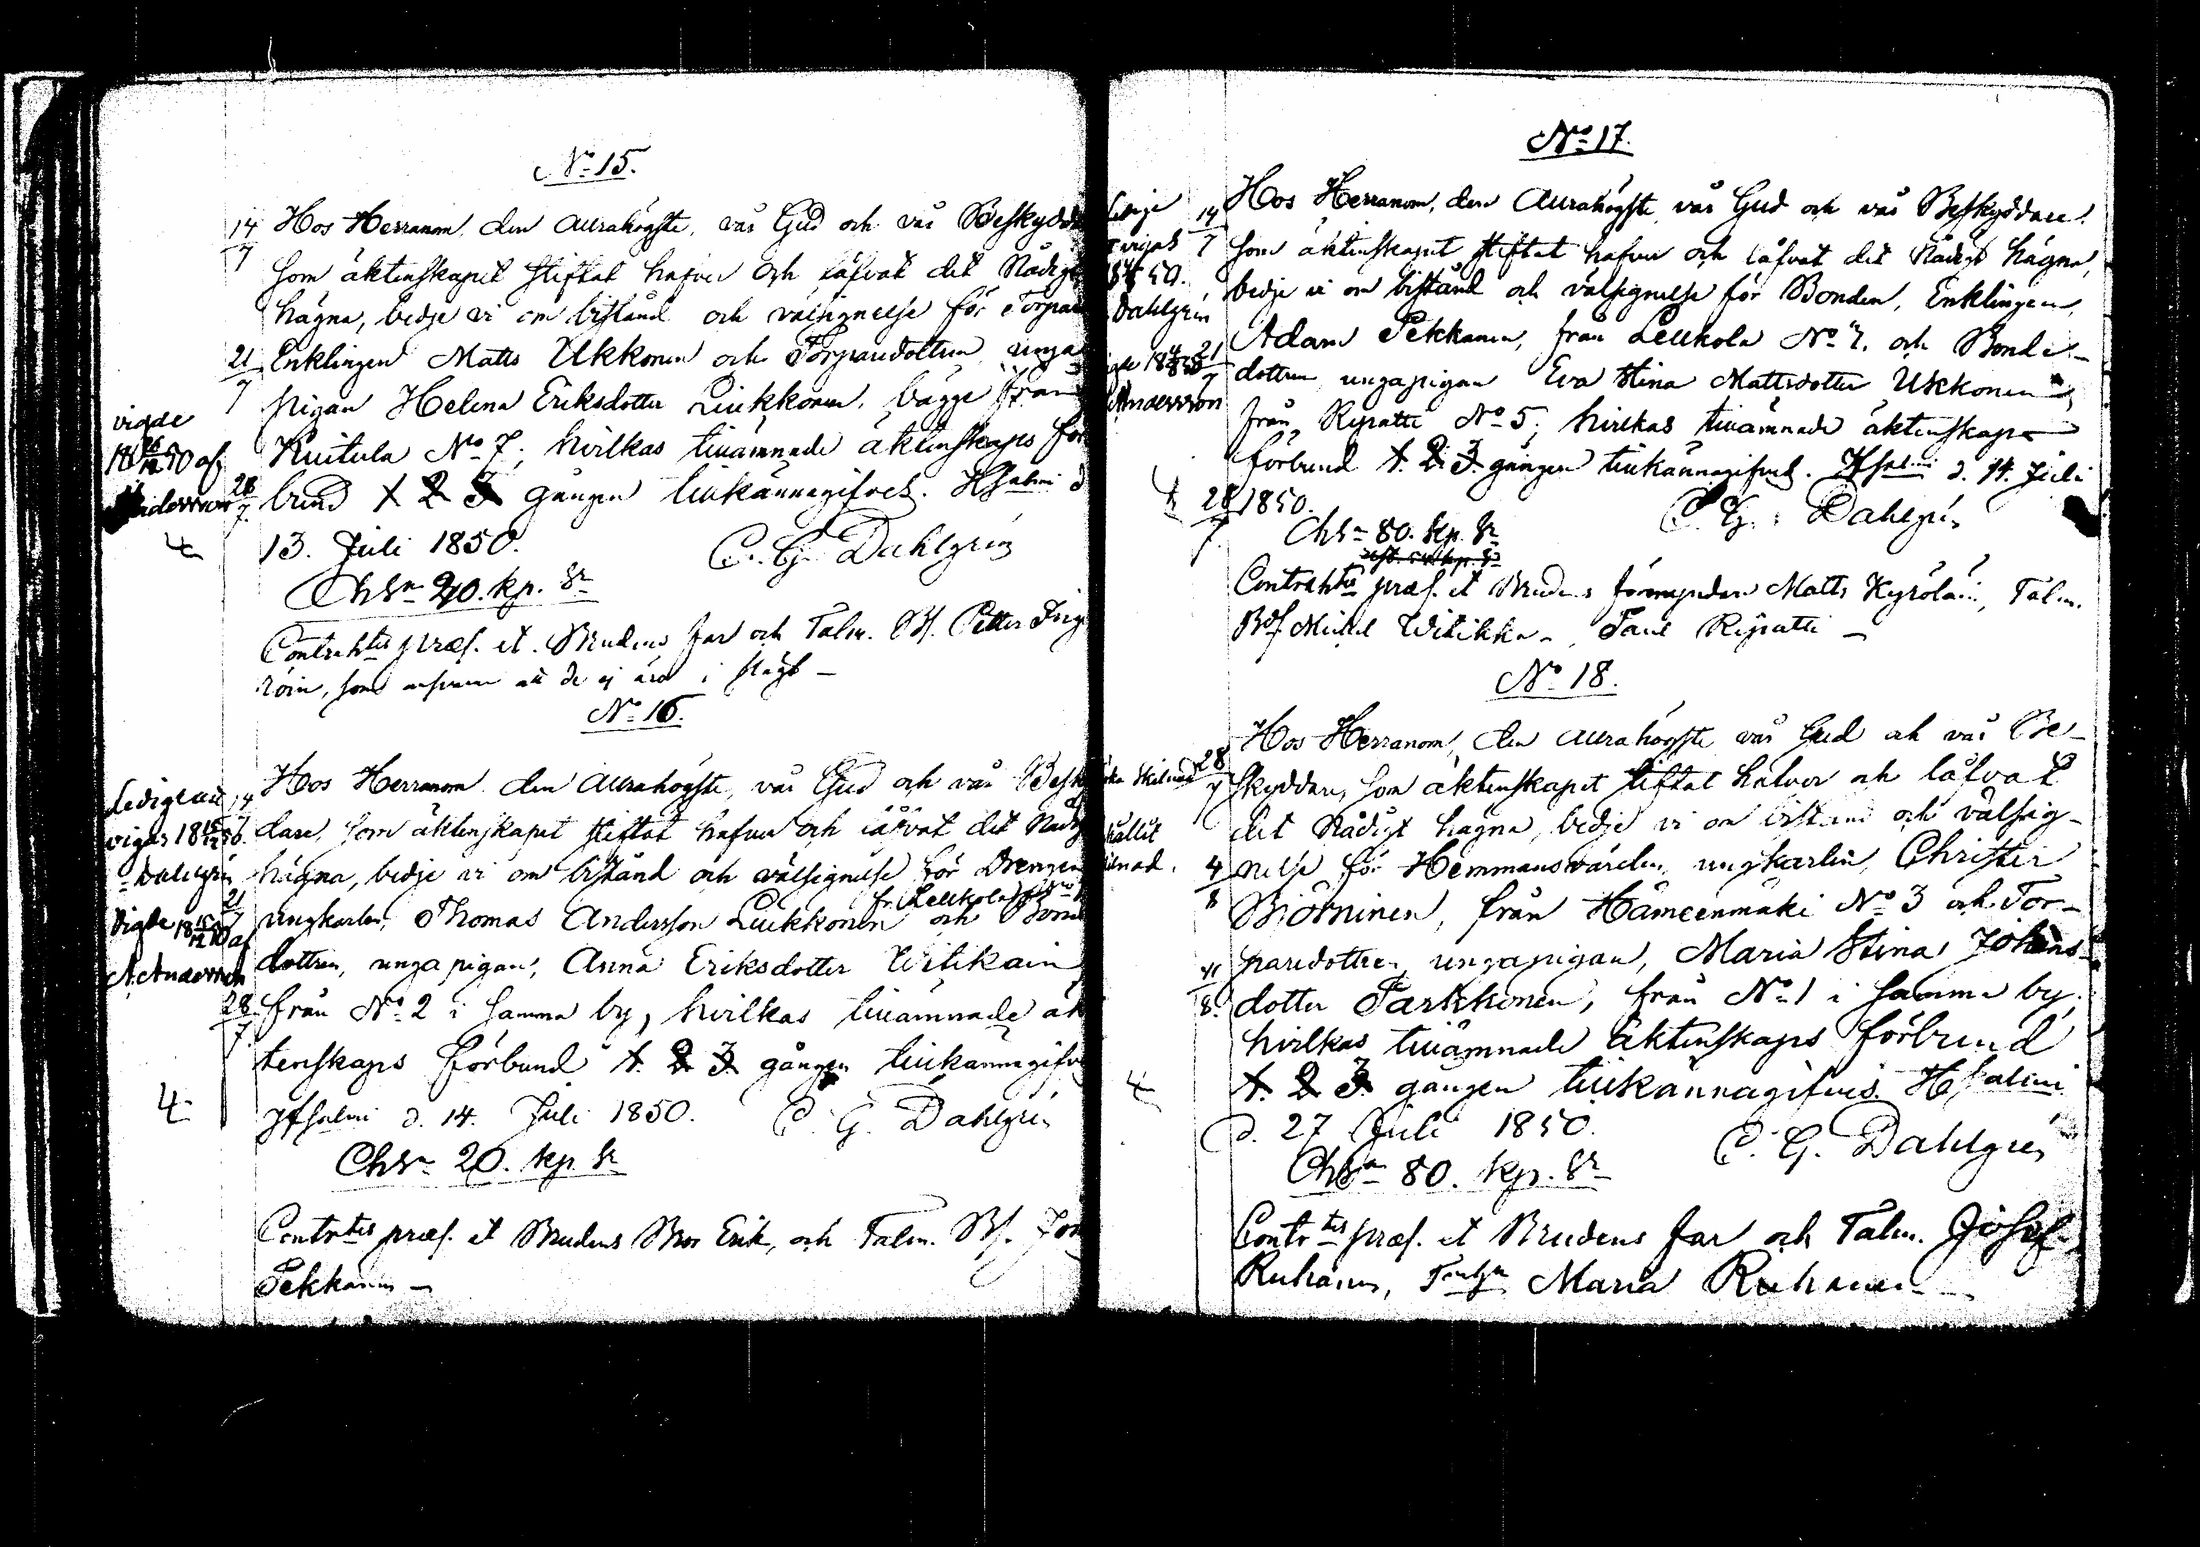 No 15.
14/7 Hos Herranom, den allrahögste, vår Gud och vår Beskydd
som äktenskapet stiftat hafver och låfvat det Nådigt
hägna, bedje vi om bistånd och välsignelse för Torpar
21/7 Enklingen Matts Ukkonen och Torparedottren unga
pigan Helena Eriksdotter Liukkonen, bägge från
Kuitula No 7; hvilkas tillämnade äktenskaps för
28/7 bund 1 2 3 gången tillkännagifves. Idensalmi d
13. Juli 1850.
C. G. Dahlgrén
Chsn 20. kp. Sr
Contrahtes præs. et Brudens far och Talm. Bf. Petter
som att de ej äro i slägt –
vigde
18 26/12 50 af
Andersson
4
No 16.
14 Hos Herranom, den allrahögste, vår Gud och vår Besk
dare, som äktenskapet stiftat hafver och låfvat det Nådigt
hägna, bedje vi om bistånd och välsignelse för Drengen
21/7 ungkarlen, Thomas Andersson Liukkonen fr. Leukola och Bonde
dottren, unga pigan, Anna Eriksdotter Witikain
28/7 från No 2 i samma by, hvilkas tillämnade äk
tenskaps förbund 1. 2 3. gången tillkännagifve
Idensalmi d. 14. Juli 1850.
C. G. Dahlgrén
Chsn 20. kp. Sr
Contrtes præs. et Brudens Bror Erik, och Talm. Bf.
Pekkanen –
Ledige att
vigas
Dahlgrén
Vigde 18 50 af
A. Andersson
4
No 17.
14/7 Hos Herranom, den allrahögste vår Gud och vår Beskyddare,
som äktenskapet stiftat hafver och låfvat det Nådigt hägna,
bedje vi om bistånd och välsignelse för Bonden, Enklingen,
Adam Pekkanen, från Leukola No 7. och Bonde-
21/7 dottren ungapigan Eva Stina Mattsdotter Ukkonen,
från Rypatti No 5; hvilkas tillämnade äktenskaps
förbund 1. 2. 3. gången tillkännagifves. Idensalmi d. 14. Juli
28/7 1850.
C. G. Dahlgrén
Chsn 80. kp. Sr
Contrahtes præs. et Brudens förmyndare Matts Kyröläin, Talm.
Bdf Michel Witikka –, Paul Rypatti –
Ledige
vigas
50.
Dahlgrén
Andersson
No 18.
28/7 Hos Herranom, den allrahögste vår Gud och vår Be-
skyddare, som äktenskapet stiftat hafver och låfvat
det Nådigt hägna, bedje vi om bistånd och välsig-
4/8 nelse för Hemmansvärden, ungkarlen, Christer
Björninen, från Hämeenmäki No 3 och Tor-
11/8 paredottren ungapigan, Maria Stina Johans-
dotter Parkkonen, från No 1 i samma by,
hvilkas tillämnade äktenskaps förbund
1. 2 3. gången tillkännagifves. Idensalmi
d. 27 Juli 1850.
C. G. Dahlgrén
Chsn 80. kp. Sr
Contrtes præs. et Brudens far och Talm. Josef
Ruhanen, Maria Ruhanen
4